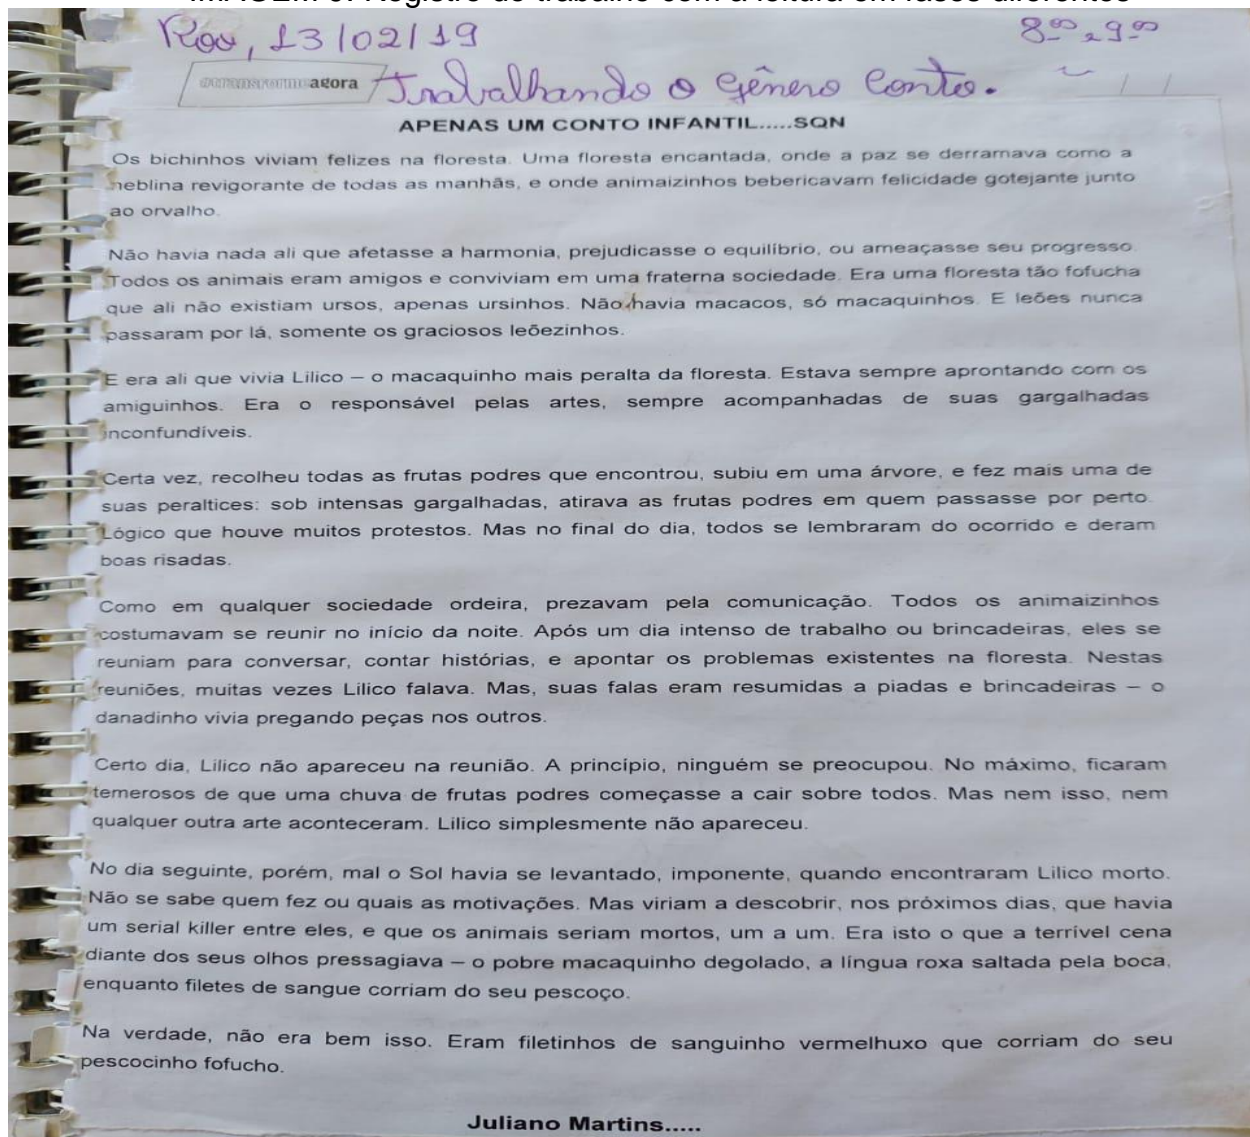 Registro do trabalho com a leitura em fases diferentes
13/02/19
8:00 9:00
agora
Trabalhando o Gênero Conto.
APENAS UM CONTO INFANTIL.....SQN
Os bichinhos viviam felizes na floresta. Uma floresta encantada, onde a paz se derramava como a
neblina revigorante de todas as manhãs, e onde animaizinhos bebericavam felicidade gotejante junto
ao orvalho.
Não havia nada ali que afetasse a harmonia, prejudicasse o equilíbrio, ou ameaçasse seu progresso.
Todos os animais eram amigos e conviviam em uma fraterna sociedade. Era uma floresta tão fofucha
que ali não existiam ursos, apenas ursinhos. Não havia macacos, só macaquinhos. E leões nunca
passaram por lá, somente os graciosos leõezinhos.
E era ali que vivia Lilico – o macaquinho mais peralta da floresta. Estava sempre aprontando com os
amiguinhos. Era o responsável pelas artes, sempre acompanhadas de suas gargalhadas
inconfundíveis.
Certa vez, recolheu todas as frutas podres que encontrou, subiu em uma árvore, e fez mais uma de
suas peraltices: sob intensas gargalhadas, atirava as frutas podres em quem passasse por perto.
Lógico que houve muitos protestos. Mas no final do dia, todos se lembraram do ocorrido e deram
boas risadas.
Como em qualquer sociedade ordeira, prezavam pela comunicação. Todos os animaizinhos
costumavam se reunir no início da noite. Após um dia intenso de trabalho ou brincadeiras, eles se
reuniam para conversar, contar histórias, e apontar os problemas existentes na floresta. Nestas
reuniões, muitas vezes Lilico falava. Mas, suas falas eram resumidas a piadas e brincadeiras – o
danadinho vivia pregando peças nos outros.
Certo dia, Lilico não apareceu na reunião. A princípio, ninguém se preocupou. No máximo, ficaram
temerosos de que uma chuva de frutas podres começasse a cair sobre todos. Mas nem isso, nem
qualquer outra arte aconteceram. Lilico simplesmente não apareceu.
No dia seguinte, porém, mal o Sol havia se levantado, imponente, quando encontraram Lilico morto.
Não se sabe quem fez ou quais as motivações. Mas viriam a descobrir, nos próximos dias, que havia
um serial killer entre eles, e que os animais seriam mortos, um a um. Era isto o que a terrível cena
diante dos seus olhos pressagiava – o pobre macaquinho degolado, a língua roxa saltada pela boca,
enquanto filetes de sangue corriam do seu pescoço.
Na verdade, não era bem isso. Eram filetinhos de sanguinho vermelhuxo que corriam do seu
pescocinho fofucho.
Juliano Martins.....